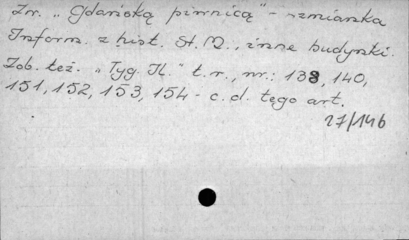 Zr. "Gdańską piwnicą" - wzmianka
Inform. z hist. St. M., inne budynki.
Zob. też. "Tyg. Il." t. r., nr.: 138, 140,
151, 152, 153, 154 - c. d. tego art.
27/146